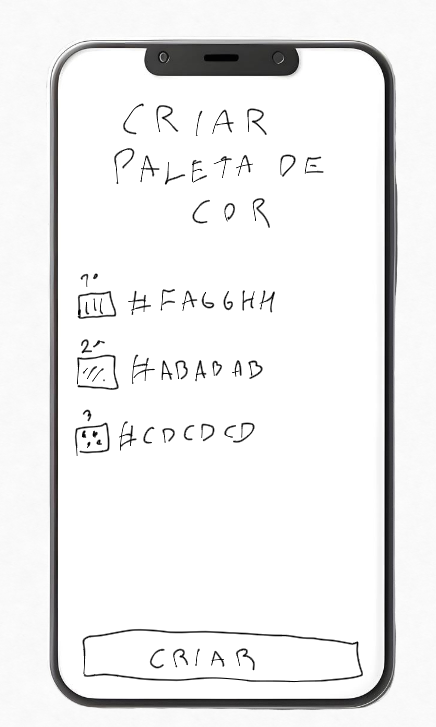 CRIAR
PALETA DE
COR
1º
#FAGGHH
2º
#ABABAB
3
#CDCDCD
CRIAR